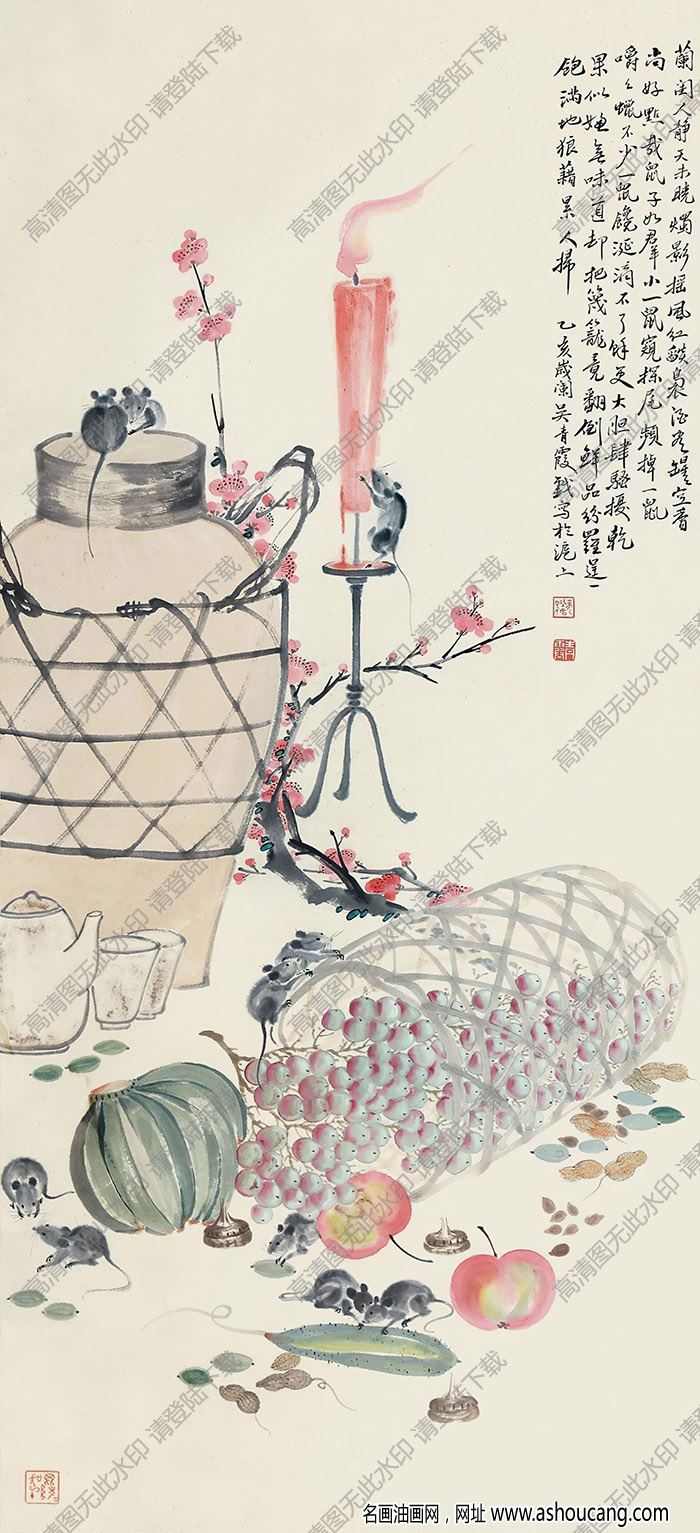 蘭閨人靜天未曉燭影搖風紅燄裊酒瓮罐空香
尚好點哉鼠子如群小一鼠窺探尾頻掉一鼠
嚼々蠟不少一鼠饞涎滴不了餘更大胆肆騷擾乾
果似嫌無味道却把篾籠竟翻倒鮮品紛羅逞一
飽滿地狼藉累人掃 乙亥歲闌吳青霞戲寫於滬上
高清图无此水印 请登陆下载
名画油画网，网址 www.ashoucang.com